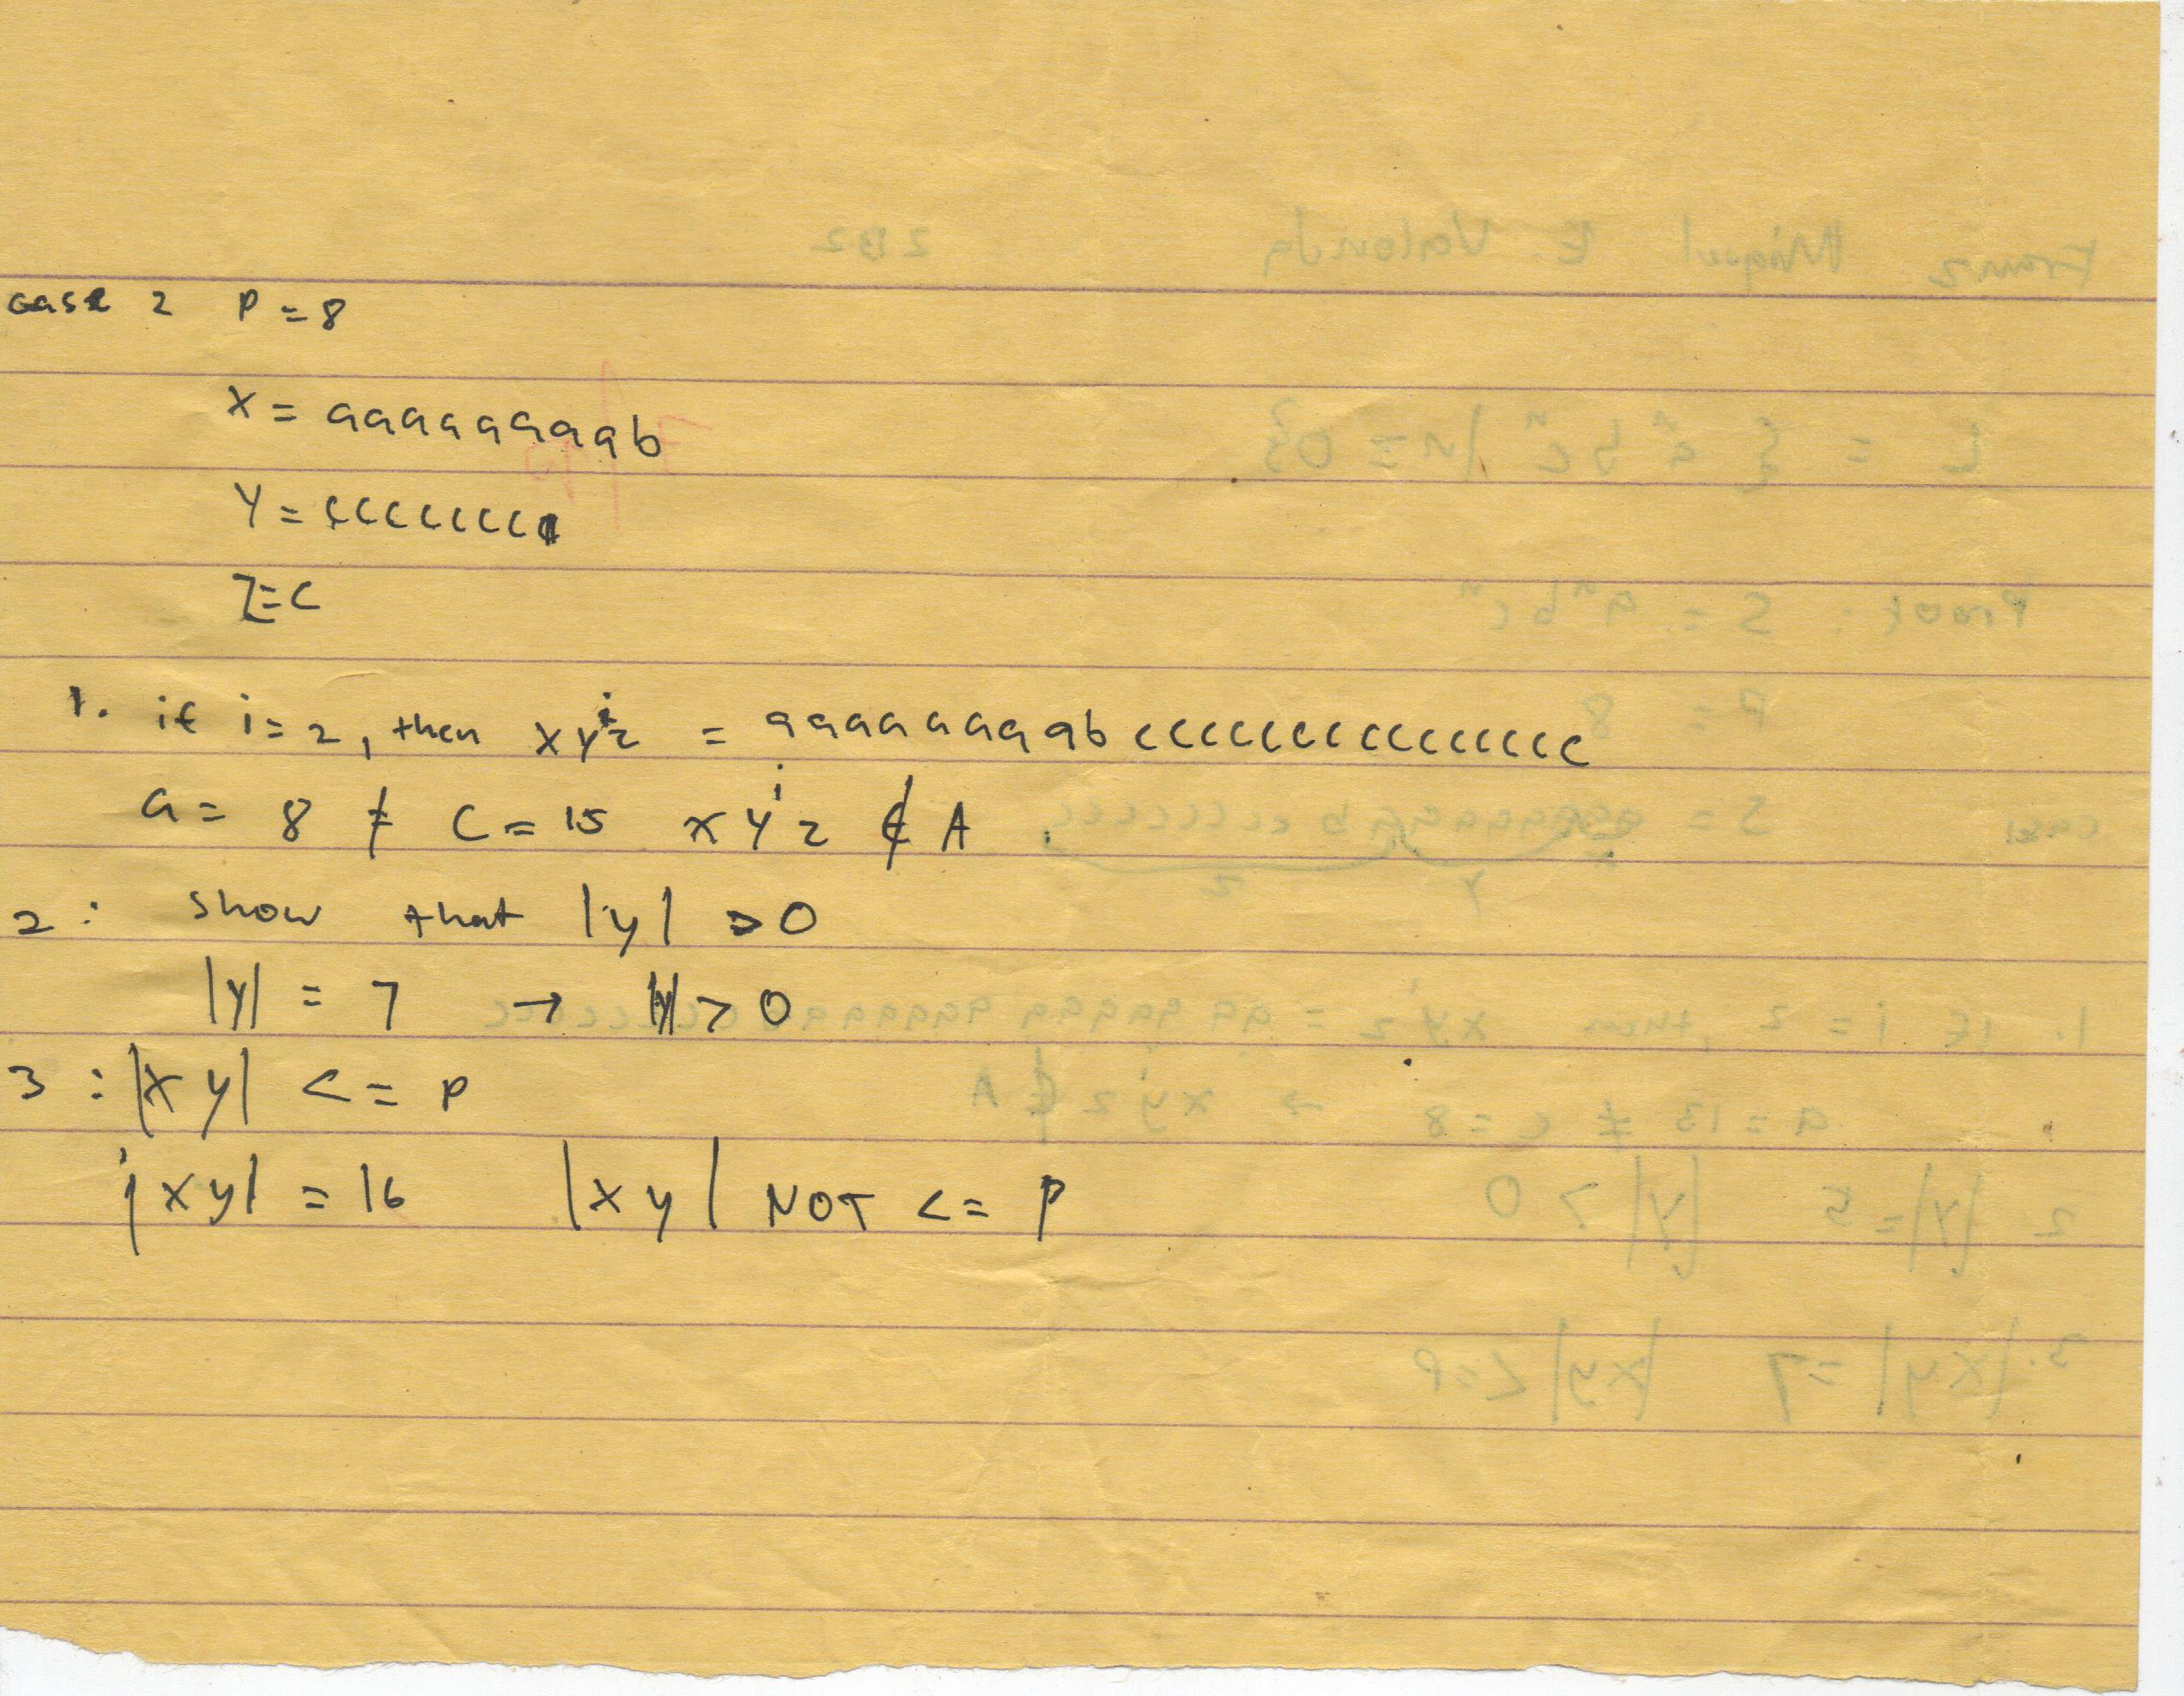 case 2 P = 8
X = aaaaaaaab
Y = ccccccc
Z = c
1. if i = 2, then xyⁱz = aaaaaaaabccccccccccccccc
a = 8 ≠ C = 15 xyⁱz ∉ A
2: show that |y| > 0
|y| = 7 → |y| > 0
3: |xy| <= P
|xy| = 16 |xy| NOT <= P